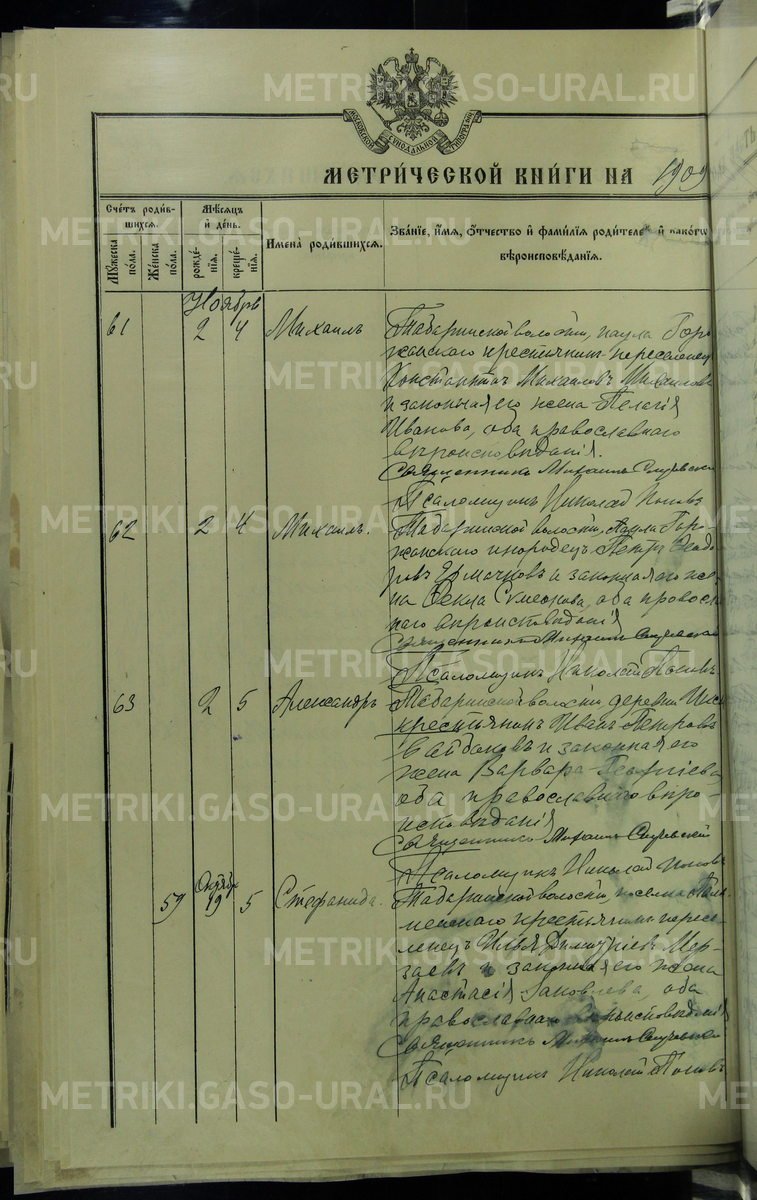 METRIKI.GASO-URAL.RU
МОСКОВСКОЙ СѴНОДАЛЬНОЙ ТИПОГРАФІИ
МЕТРИ́ЧЕСКОЙ КНИ́ГИ НА 1909
Сче́тъ роди́в-
шихсѧ.
Мѣ́сѧцъ
и҆ де́нь.
Мꙋ́жеска по́ла.
Же́нска по́ла.
рожде́нїѧ.
креще́нїѧ.
И҆мена̀ роди́вшихсѧ.
Зва́нїе, и҆́мѧ, ѻ҆́тчество и҆ фами́лїѧ роди́теле и҆ како́гѡ
вѣроисповѣ́данїѧ.
Ноябрь
61 2 4 Михаилъ
Табаринской волости, паула Гор-
жанскаго крестьянинъ переселенецъ
Константинъ Михаиловъ
и законная его жена Пелагія
Иванова, оба православнаго
вѣроисповѣданія.
Священникъ Михаилъ
Псаломщикъ Николай Поповъ
62 2 4 Михаилъ.
Табаринской волости, паула Гор-
жанскаго инородецъ Петръ Ѳеодо-
ровъ и законная его же-
на Ѳекла оба правосл
наго вѣроисповѣданія
Священникъ Михаилъ
Псаломщикъ Николай Поповъ
63 2 5 Александръ
Табаринской волости, деревни
крестьянинъ Иванъ Петровъ
и законная его
жена Варвара Георгіева
оба православнаго вѣро-
исповѣданія
Священникъ Михаилъ
Псаломщикъ Николай Поповъ
Октября
59 19 5 Стефанида.
Табаринской волости, поселка
крестьянинъ пересе-
ленецъ Илья Димитріевъ Мер-
заевъ и законная его жена
Анастасія Іаковлева, оба
православнаго вѣроисповѣданія
Священникъ Михаилъ
Псаломщикъ Николай Поповъ